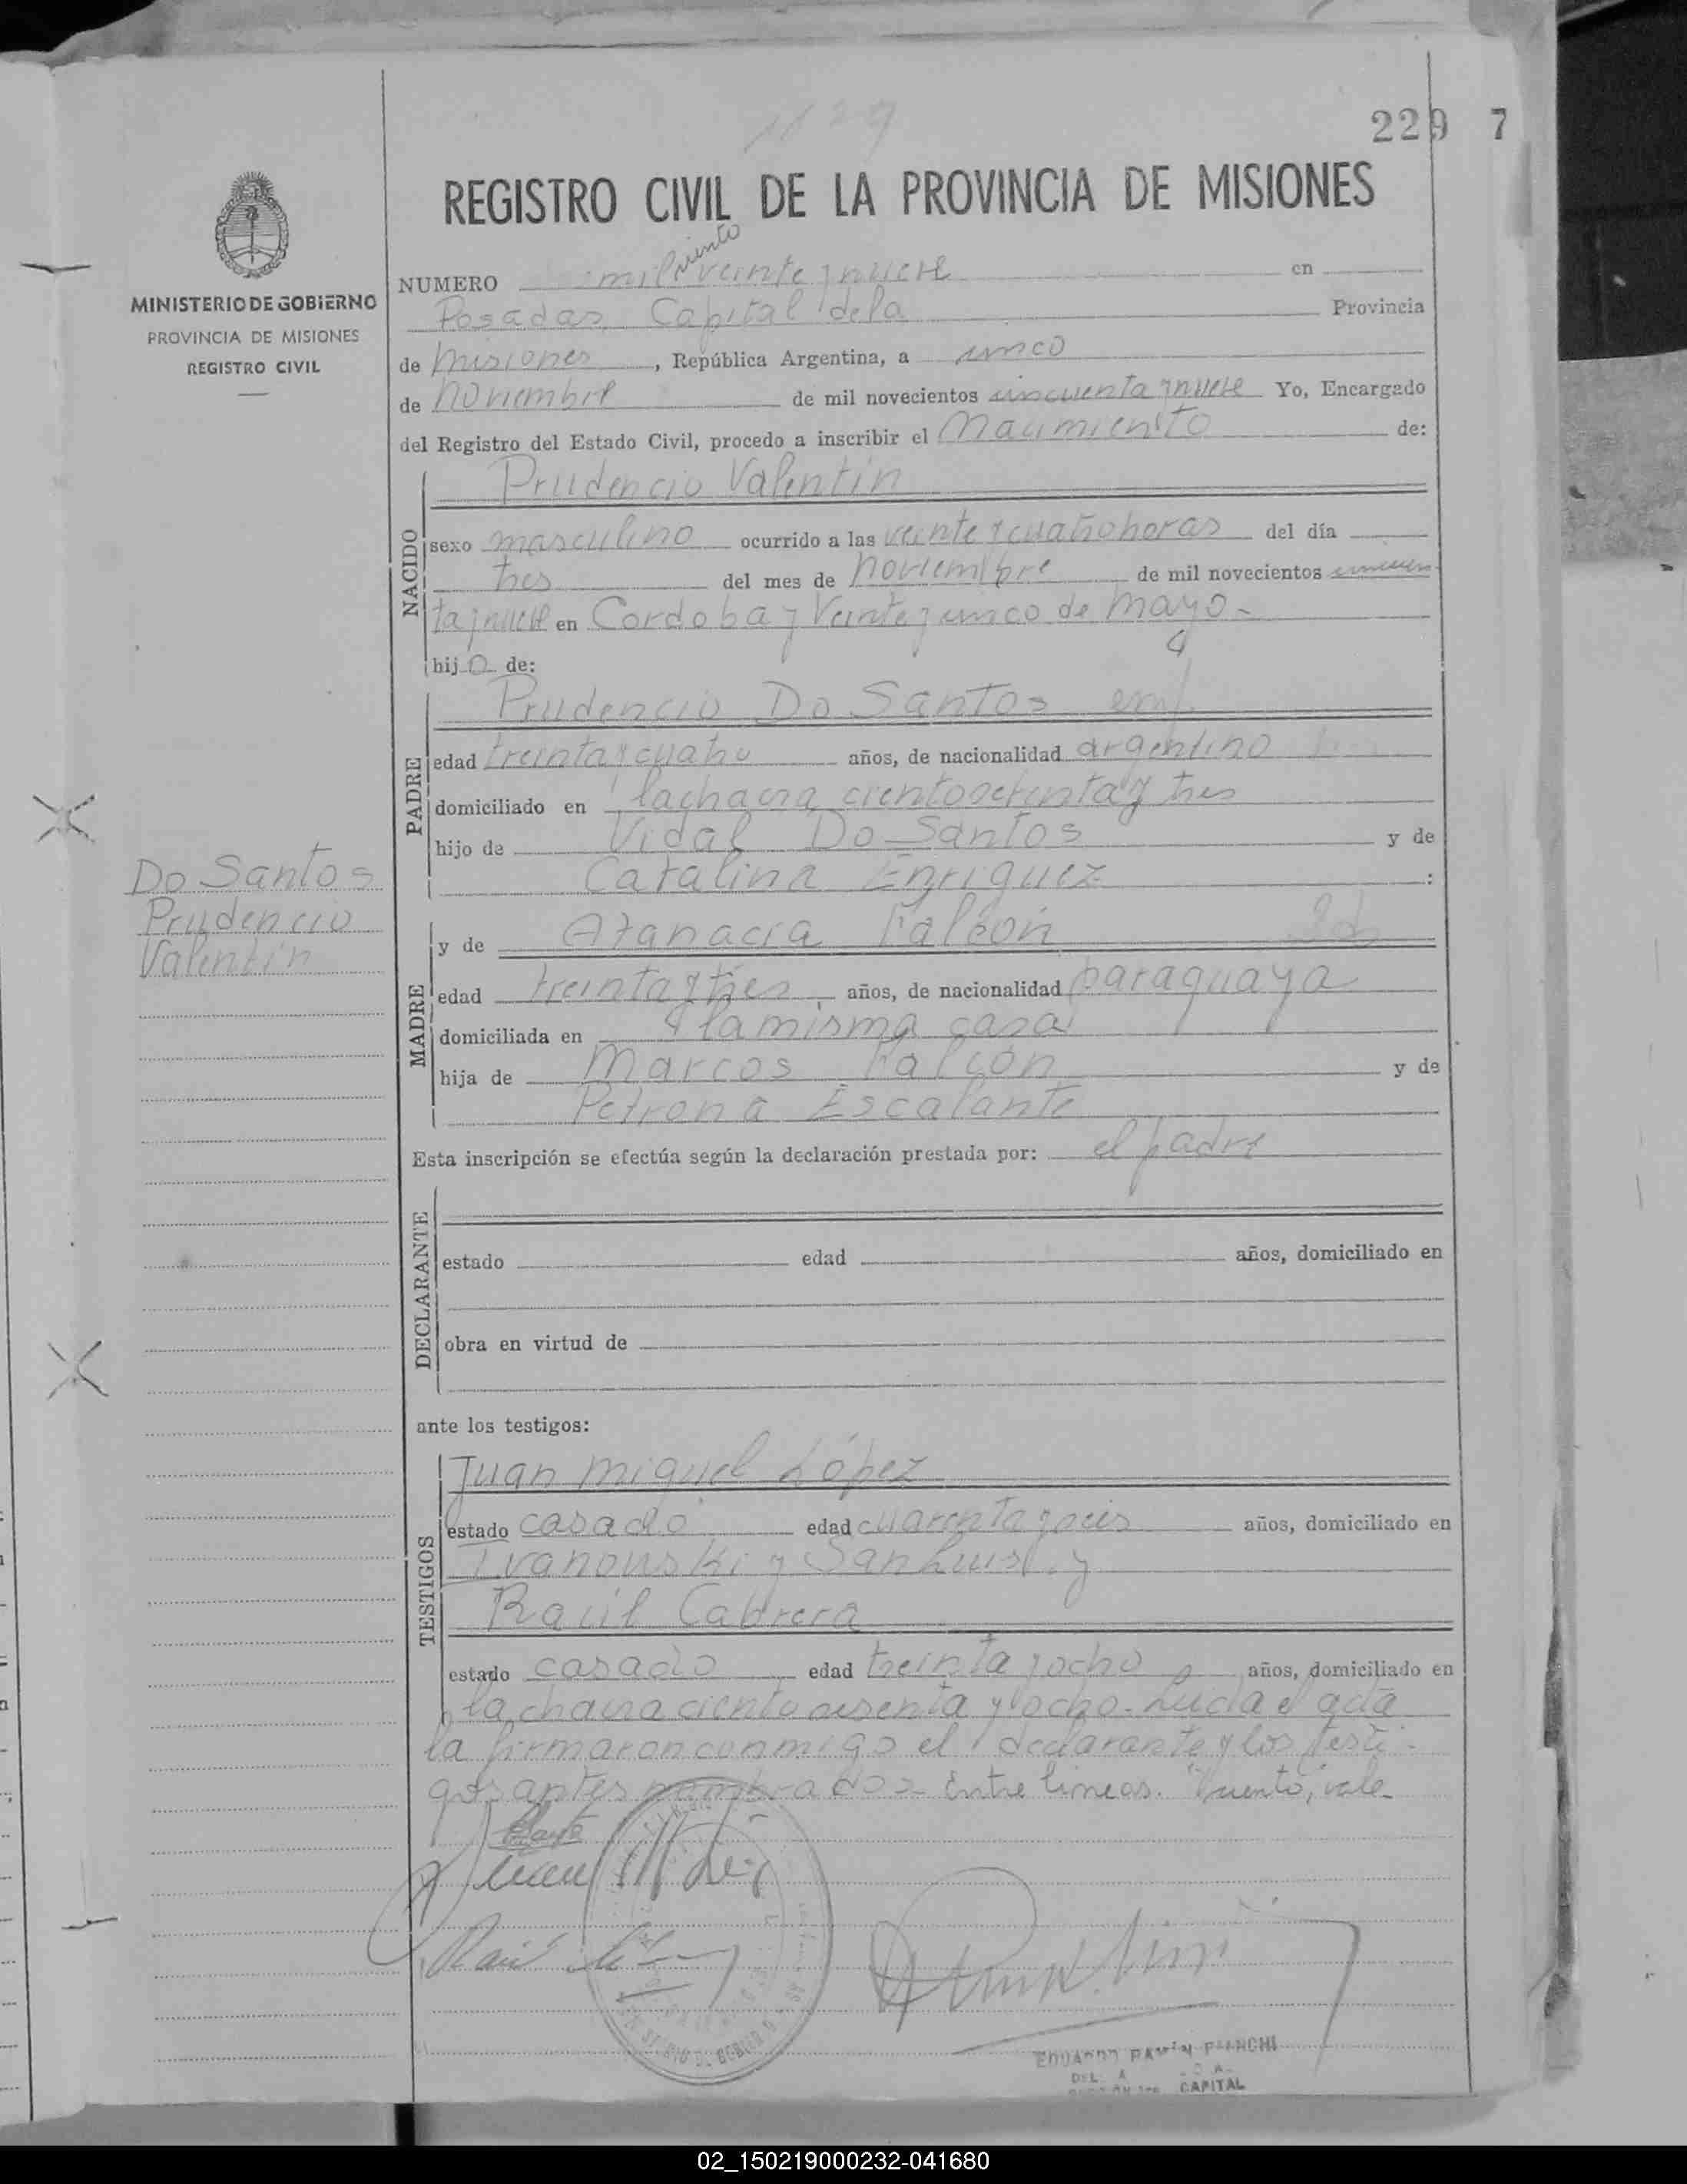 1129
229 7
REGISTRO CIVIL DE LA PROVINCIA DE MISIONES
MINISTERIO DE GOBIERNO
PROVINCIA DE MISIONES
REGISTRO CIVIL
ciento
NUMERO mil veinte y nueve en
Posadas, Capital de la Provincia
de Misiones, República Argentina, a cinco
de noviembre de mil novecientos cincuenta y nueve Yo, Encargado
del Registro del Estado Civil, procedo a inscribir el Nacimiento de:
NACIDO
Prudencio Valentín
sexo masculino ocurrido a las veinte y cuatro horas del día
tres del mes de noviembre de mil novecientos cincuen
ta y nueve en Cordoba y Veinte y cinco de Mayo-
hijo de:
PADRE
Prudencio Do Santos
edad treinta y cuatro años, de nacionalidad argentino
domiciliado en la chacra ciento setenta y tres
hijo de Vidal Do Santos y de
Catalina Enriquez :
Do Santos
Prudencio
Valentín
MADRE
y de Atanacia Falcón
edad treinta y tres años, de nacionalidad paraguaya
domiciliada en la misma casa
hija de Marcos Falcón y de
Petrona Escalante
Esta inscripción se efectúa según la declaración prestada por: el padre
DECLARANTE
estado edad años, domiciliado en
obra en virtud de
ante los testigos:
TESTIGOS
Juan Miguel López
estado casado edad cuarenta y seis años, domiciliado en
Ivanouski y San Luis. y
Raúl Cabrera
estado casado edad treinta y ocho años, domiciliado en
la chacra ciento sesenta y ocho. Leída el acta
la firmaron conmigo el declarante y los testi-
gos antes nombrados- Entre lineas. "ciento", vale-
Juan M
Raúl
EDUARDO RAMÓN BIANCHI
CAPITAL
02_150219000232-041680